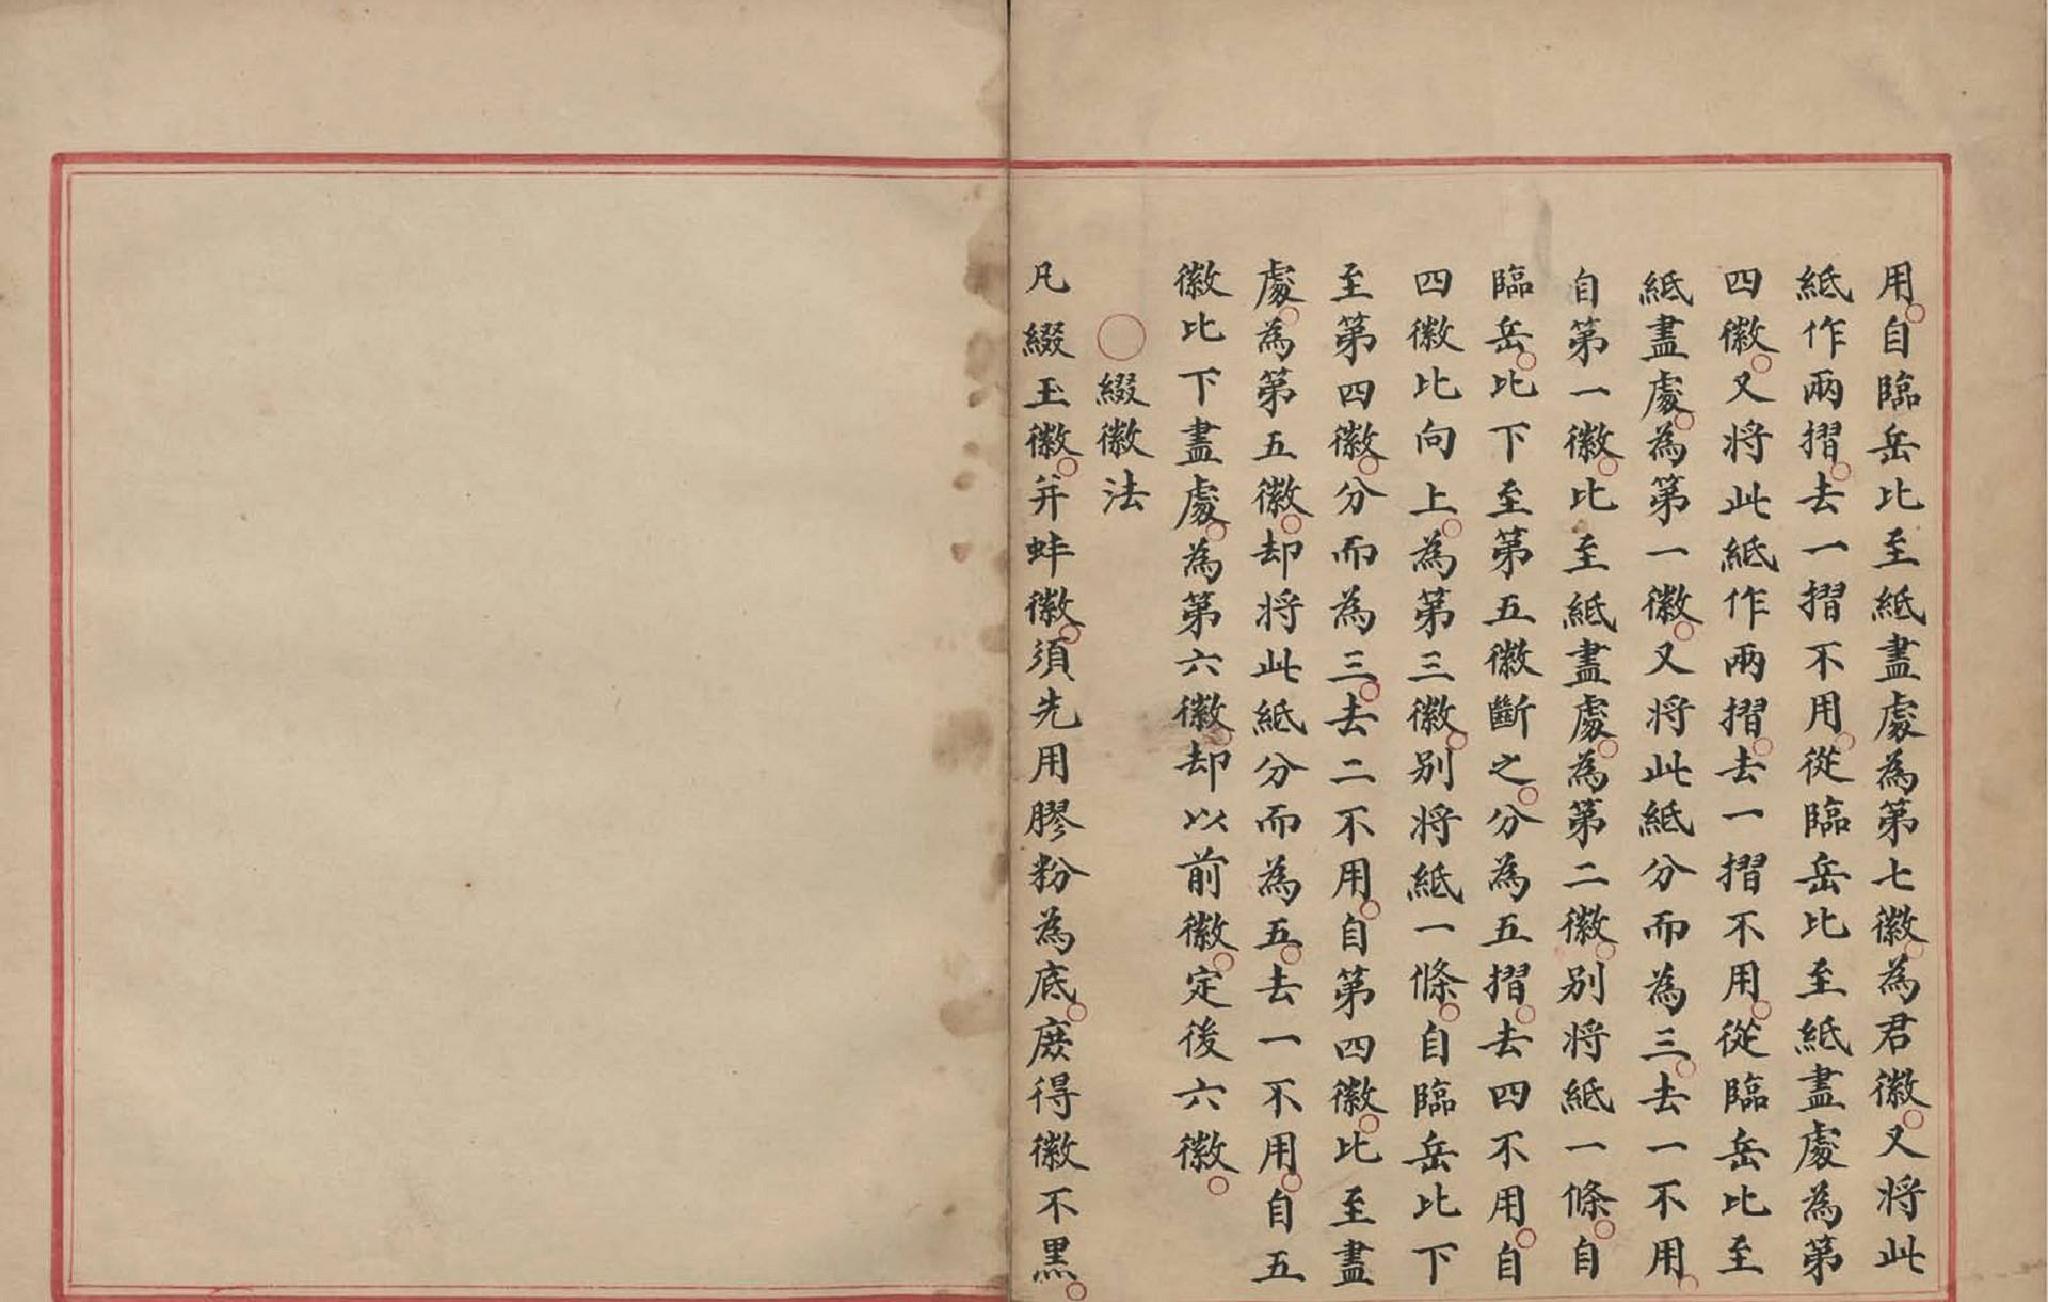 用自臨岳比至紙盡處為第七徽為君徽又將此
紙作兩摺去一摺不用從臨岳比至紙盡處為第
四徽又將此紙作兩摺去一摺不用從臨岳比至
紙盡處為第一徽又將此紙分而為三去一不用
自第一徽比至紙盡處為第二徽別將紙一條自
臨岳比下至第五徽斷之分為五摺去四不用自
四徽比向上為第三徽別將紙一條自臨岳比下
至第四徽分而為三去二不用自第四徽比至盡
處為第五徽却將此紙分而為五去一不用自五
徽比下盡處為第六徽却以前徽定後六徽
○綴徽法
凡綴玉徽并蚌徽須先用膠粉為底庻得徽不黑